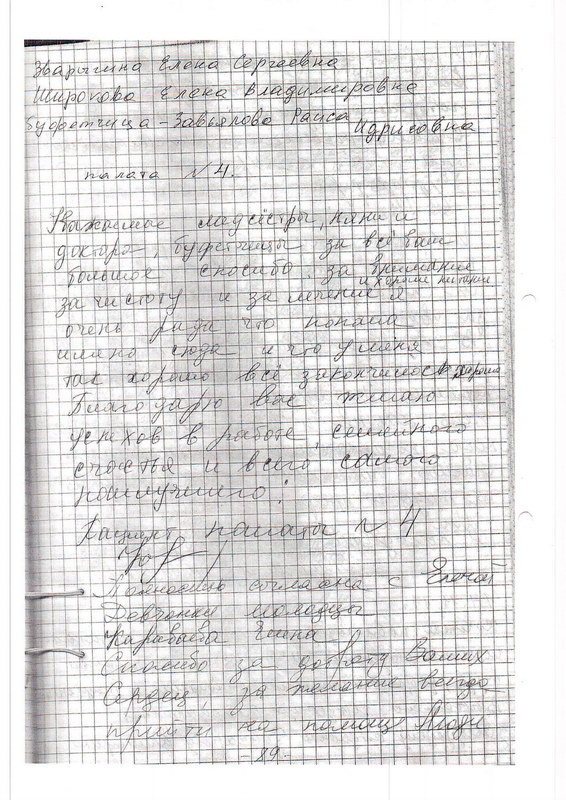 Зварыгина Елена Сергеевна
Широкова Елена Владимировна
Буфетчица - Завьялова Раиса Идрисовна
палата № 4.
Уважаемые медсёстры, няни и
доктора, буфетчицы за всё вам
большое спосибо. за внимание
за чистоту и за лечение и хорошее питание я
очень рада что попала
имено сюда и что у меня
так хорошо всё закончилось
Благодарю вас желаю
успехов в работе, семейного
счастья и всего самого
наилучшего!
Пациент палаты № 4
Полностью согласна с Еленой
Девчонки молодцы
Елена
Спасибо за доброту Ваших
Сердец, за желание всегда
прийти на помощь Люди
- 89 -